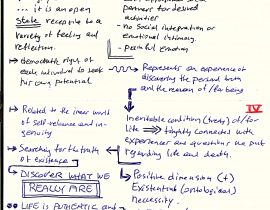 ... it is an open
state receptive to a
variety of feeling and
reflection.
partners for desired
activities
- no social integration or
emotional intimacy.
- painful emotion
democratic right of
each individual to seek
his own potential
Represents an experience of
discovering the personal truth
and the reason of/for being
IV
Related to the inner world
of self-reliance and in-
genuity
Inevitable condition (trait) of/for
life => tightly connected with
experiences and questions we put
regarding life and death.
Searching for the truth
of existence
DISCOVER WHAT WE
REALLY ARE
Positive dimension (+)
Existential (ontological)
necessity.
LIFE IS AUTHENTIC and